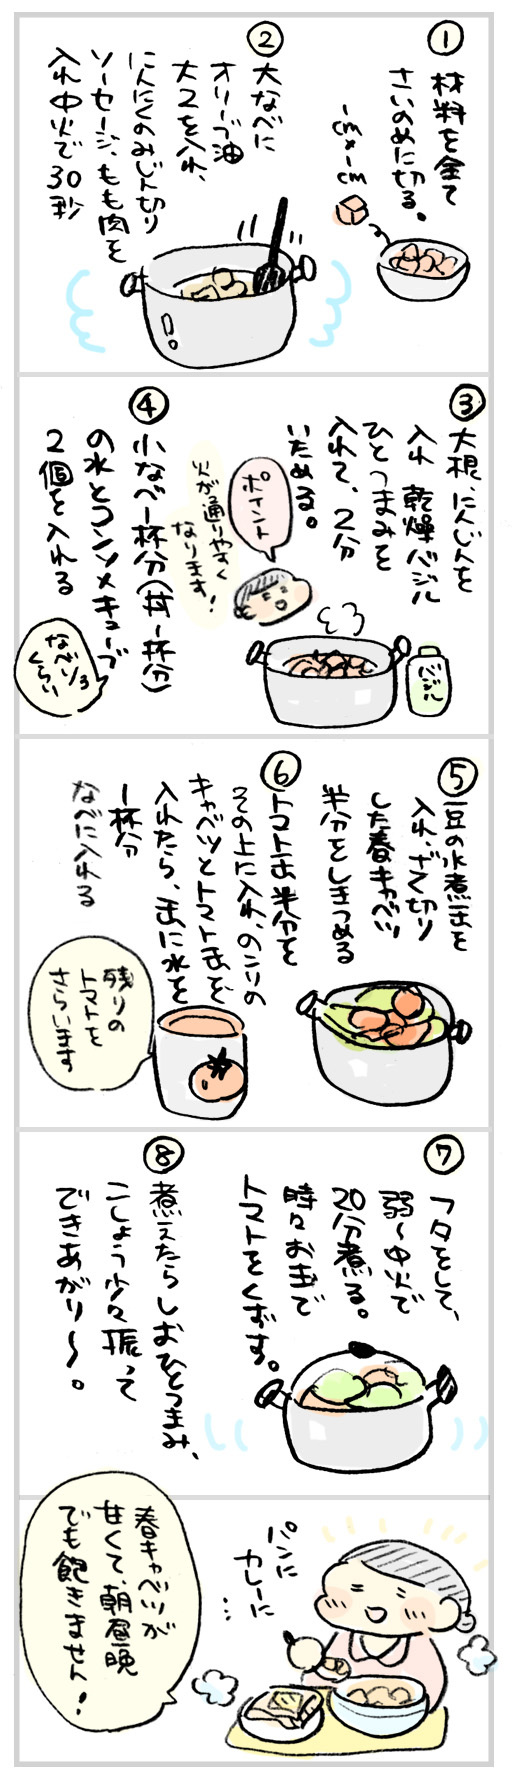 ①
材料を全て
さいのめに切る。
1cm×1cm
②
大なべに
オリーブ油
大2を入れ、
にんにくのみじん切り
ソーセージ、もも肉を
入れ中火で30秒
③
大根、にんじんを
入れ 乾燥バジル
ひとつまみを
入れて、2分
いためる。
ポイント
火が通りやすく
なります!
バジル
④
小なべ一杯分(丼一杯分)
の水とコンソメキューブ
2個を入れる
なべ1/3
くらい
⑤
豆の水煮缶を
入れ、ざく切り
した春キャベツ
半分をしきつめる
⑥
トマト缶半分を
その上に入れ、のこりの
キャベツとトマト缶を
入れたら、缶に水を
1杯分
なべに入れる
残りの
トマトを
さらいます
⑦
フタをして、
弱〜中火で
20分煮る。
時々お玉で
トマトをくずす。
⑧
煮えたらしおひとつまみ、
こしょう少々振って
できあがり〜。
パンに
カレーに
…
春キャベツが
甘くて、朝昼晩
でも飽きません!